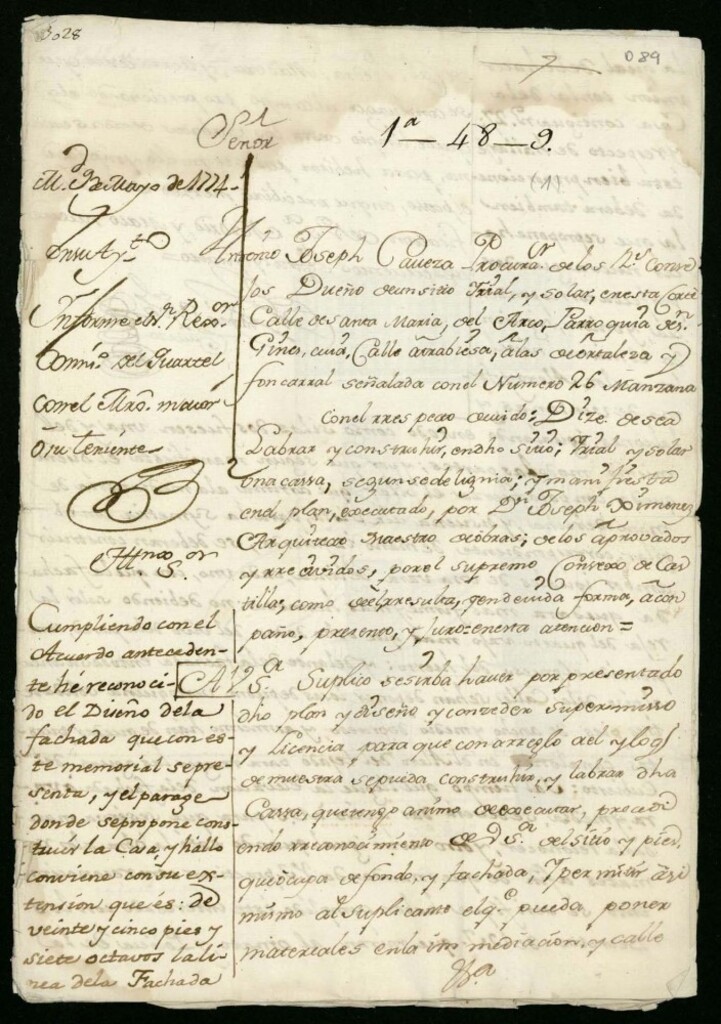 3028
089
Señor
1ª — 48 — 9.
(1)
M.d 9 de Mayo de 1774.
Informe el S.r Rex.or
Comis.o del Quartel
con el Mro. mayor
ó su teniente
Ill.mo S.or
Cumpliendo con el
Acuerdo anteceden-
te hé reconoci-
do el Diseño dela
fachada que con es-
te memorial sepre-
senta, y el parage
donde sepropone cons-
truir la Casa y hallo
conviene con su ex-
tension que és: de
veinte y cinco pies y
siete octavos la li-
nea dela Fachada
Antonio Joseph Caveza Procura.or de los R.s Conse
jos Dueño de un sitio Trial, y solar, en esta Corte
Calle de Santa Maria, del Arco, Parroquia de Sn.
Gines, cuia, Calle atrabiesa, álas de ortaleza y
foncarral señalada con el Numero 26 Manzana
con el rrespecto devido: Dize desea
Labrar y construhir, en dho sitio; Trial y solar
una cassa, segun se delignia; y manifiesta
en el plan, executado, por Dn. Joseph Ximenez
Arquitecto Maestro de óbras; de los aprovados
y rrecividos, por el supremo Consexo de Cas
tilla, como del rresulta, q en devida forma, acom
paño, presento, y Juro = en esta atencion =
A V.S.a Suplico se sirba haver por presentado
dho plan y diseño y conzeder su permisso
y Licencia, para que con arreglo a el y logs
demuestra sepueda construhir, y labrar dha
Cassa, que tengo animo de executar, precedi
endo rreconocimiento de V.S.a del sitio y pies,
que ócupa de fondo, y fachada, Y permitir así
mismo al suplicante el q.e pueda poner
materiales en la immediacion, y calle